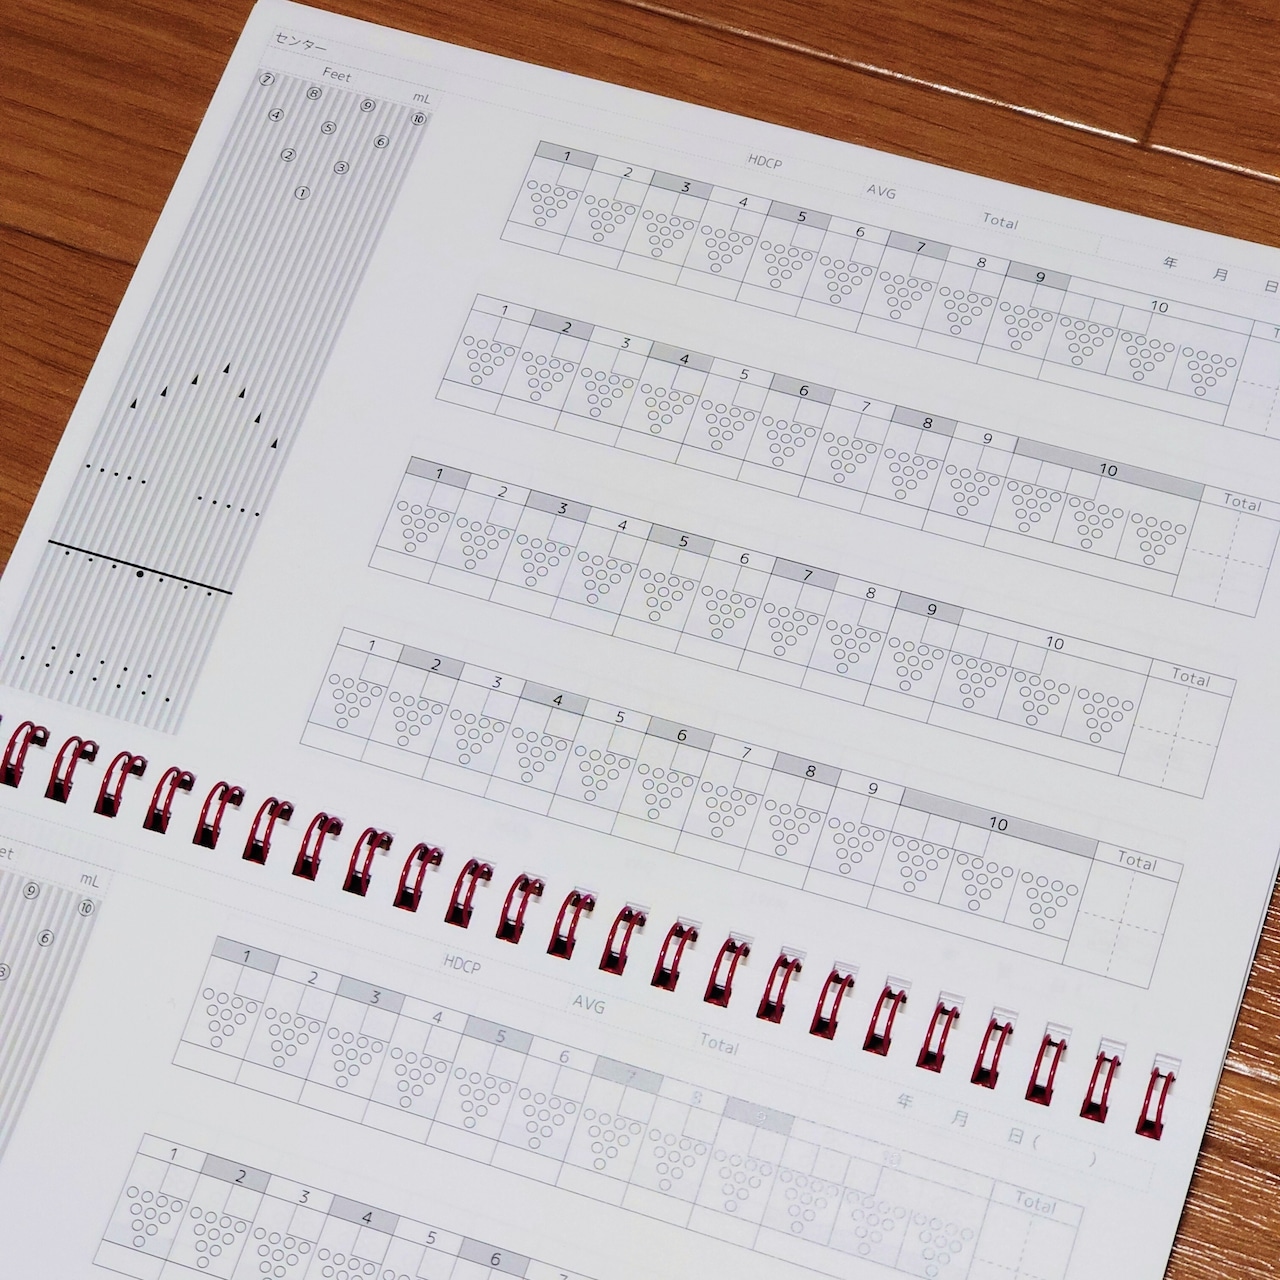 センター
Feet mL
⑦ ⑧ ⑨ ⑩
④ ⑤ ⑥
② ③
①
HDCP AVG Total 年 月 日
1 2 3 4 5 6 7 8 9 10
1 2 3 4 5 6 7 8 9 10 Total
1 2 3 4 5 6 7 8 9 10 Total
1 2 3 4 5 6 7 8 9 10 Total
mL
⑨ ⑩
⑥
HDCP AVG Total 年 月 日( )
1 2 3 4 5 6 7 8 9 10 Total
1 2 3 4 5 6